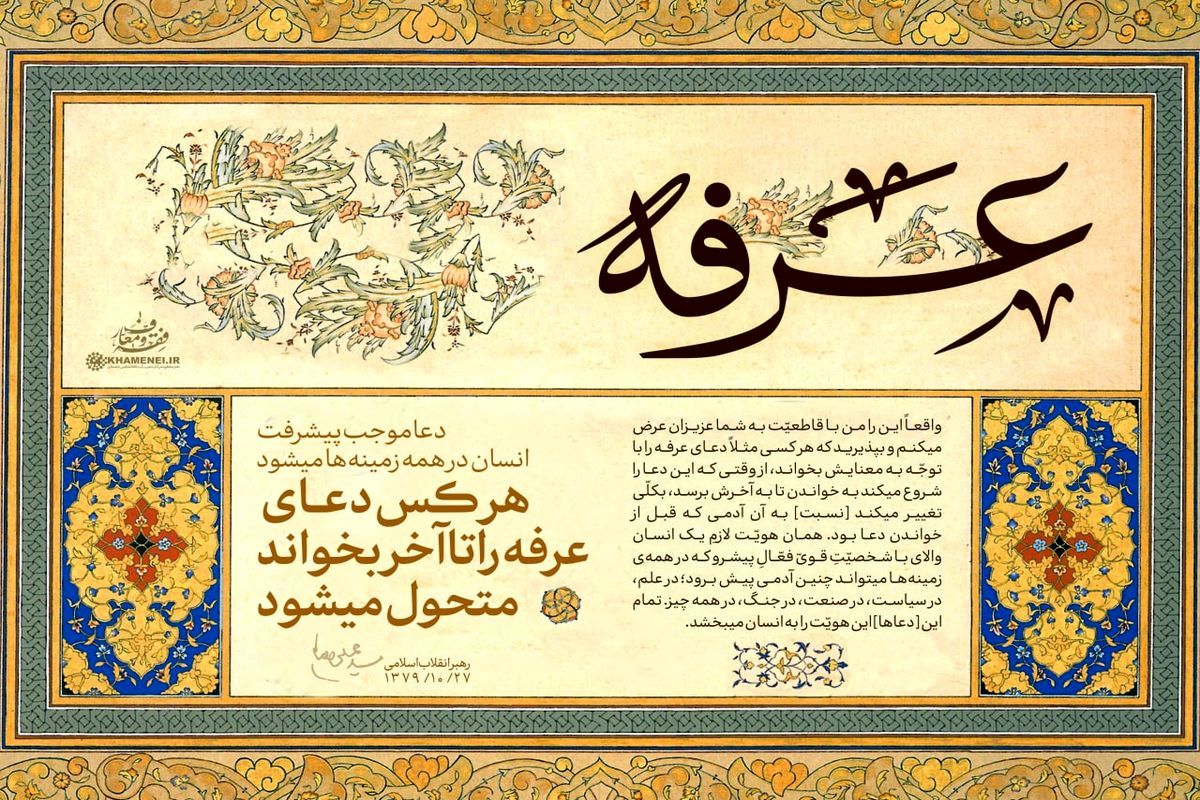 عرفه
فقه و معارف
KHAMENEI.IR
واقعاً این را من با قاطعیّت به شما عزیزان عرض
میکنم و بپذیرید که هر کسی مثلاً دعای عرفه را با
توجّه به معنایش بخواند، از وقتی که این دعا را
شروع میکند به خواندن تا به آخرش برسد، بکلّی
تغییر میکند [نسبت] به آن آدمی که قبل از
خواندن دعا بود. همان هویّت لازمِ یک انسان
والای با شخصیّتِ قویّ فعّالِ پیشرو که در همه‌ی
زمینه‌ها میتواند چنین آدمی پیش برود؛ در علم،
در سیاست، در صنعت، در جنگ، در همه چیز. تمام
این [دعاها] این هویّت را به انسان میبخشد.
دعا موجب پیشرفت
انسان در همه زمینه ها میشود
هر کس دعای
عرفه را تا آخر بخواند
متحول میشود
رهبر انقلاب اسلامی
۱۳۷۹/۱۰/۲۷